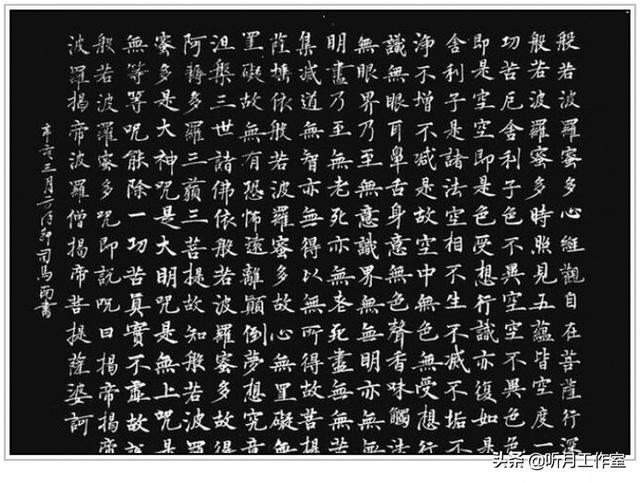 般若波羅蜜多心經觀自在菩薩行深
般若波羅蜜多時照見五蘊皆空度一
切苦厄舍利子色不異空空不異色色
即是空空即是色受想行識亦復如是
舍利子是諸法空相不生不滅不垢不
淨不增不減是故空中無色無受想行
識無眼耳鼻舌身意無色聲香味觸法
無眼界乃至無意識界無無明亦無無
明盡乃至無老死亦無老死盡無苦
集滅道無智亦無得以無所得故菩提
薩埵依般若波羅蜜多故心無罣礙無
罣礙故無有恐怖遠離顛倒夢想究竟
涅槃三世諸佛依般若波羅蜜多故得
阿耨多羅三藐三菩提故知般若波羅
蜜多是大神呪是大明呪是無上呪是
無等等呪能除一切苦真實不虛故說
般若波羅蜜多呪即說呪曰揭帝揭帝
波羅揭帝波羅僧揭帝菩提薩婆訶
辛亥三月司馬雨書
头条 @听月工作室